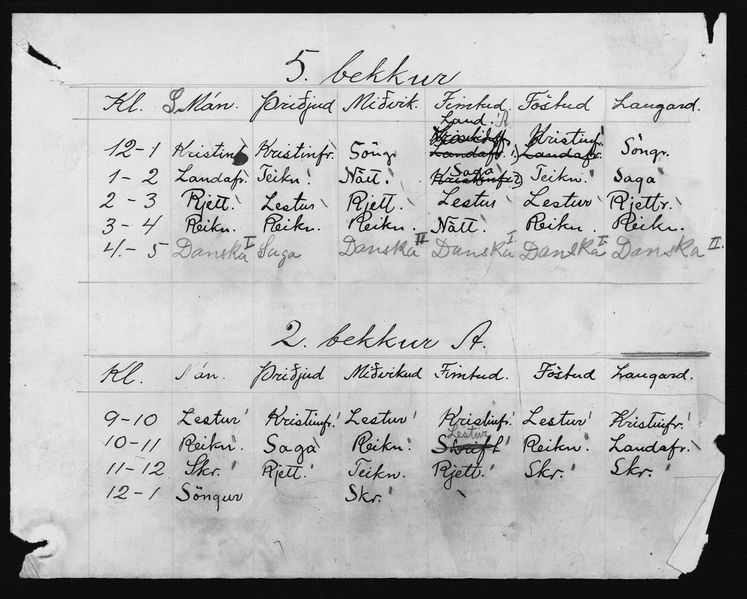 5. bekkur
Kl. Mán. Þriðjud Miðvik. Fimtud. Föstud Laugard.
Land.
12-1 Kristinf Kristinfr. Söngr Landafr. Kristinfr. Landafr. Söngr.
Saga
1-2 Landafr. Teikn. Nátt. Kristinfr. Teikn. Saga
2-3 Rjett. Lestur Rjett. Lestur Lestur Rjettr.
3-4 Reikn. Reikn. Reikn. Nátt. Reikn. Reikn.
4-5 Danska I Saga Danska II Danska I Danska I Danska II.
2. bekkur A.
Kl. Mán. Þriðjud Miðvikud Fimtud. Föstud Laugard.
9-10 Lestur Kristinfr. Lestur Kristinfr. Lestur Kristinfr.
Lestur
10-11 Reikn. Saga Reikn. Skrift Reikn. Landafr.
11-12 Skr. Rjett. Teikn. Rjett. Skr. Skr.
12-1 Söngur Skr.